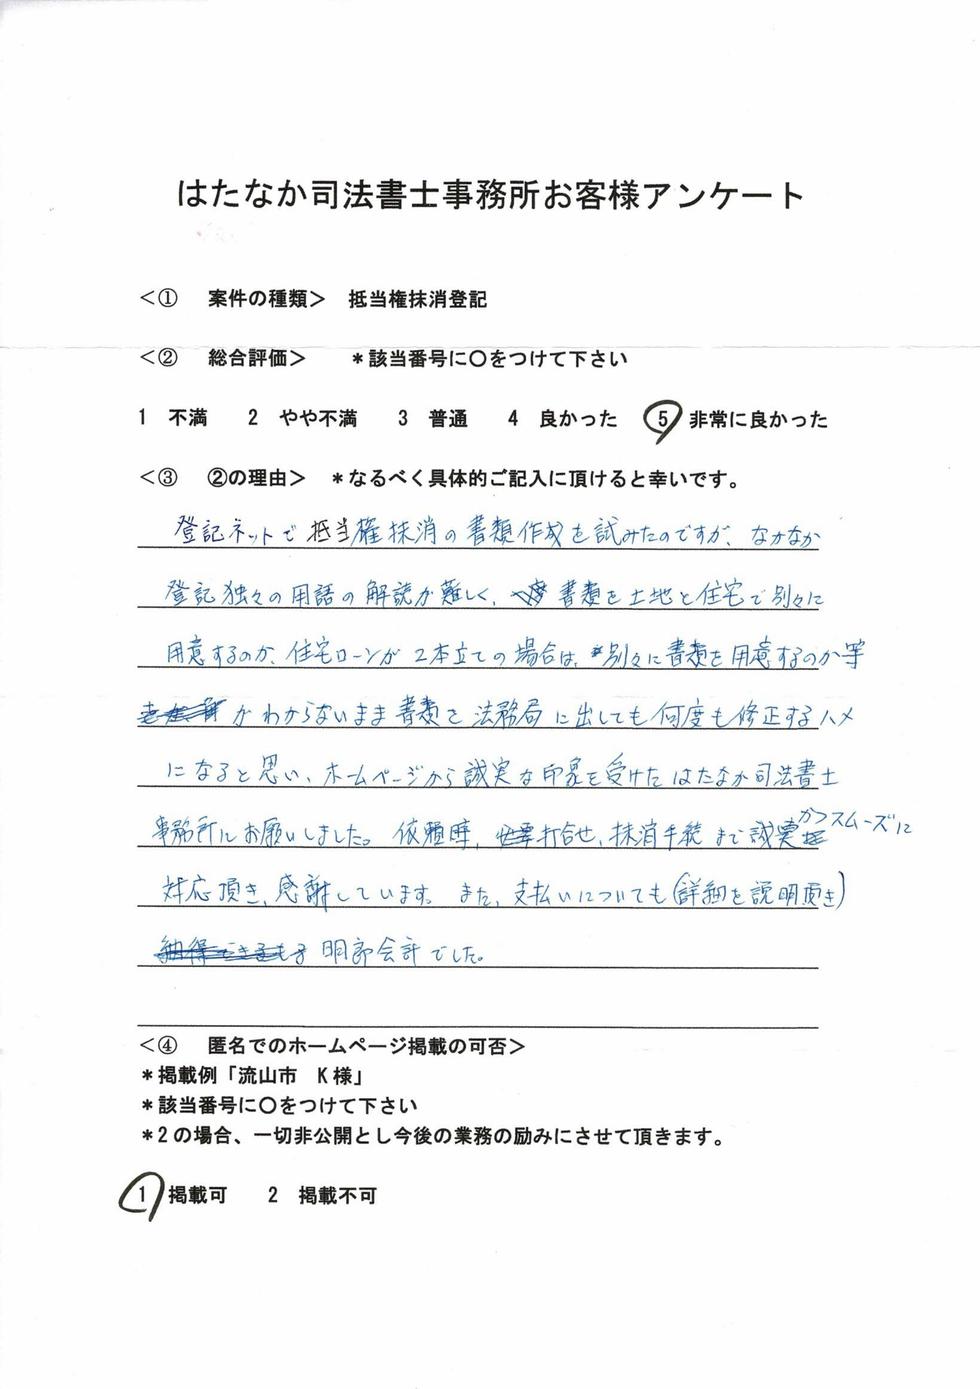 はたなか司法書士事務所お客様アンケート
＜①　案件の種類＞　抵当権抹消登記
＜②　総合評価＞　＊該当番号に〇をつけて下さい
1　不満　2　やや不満　3　普通　4　良かった　5　非常に良かった
＜③　②の理由＞　＊なるべく具体的ご記入に頂けると幸いです。
登記ネットで抵当権抹消の書類作成を試みたのですが、なかなか
登記独々の用語の解読が難しく、書類を土地と住宅で別々に
用意するのか、住宅ローンが2本立ての場合は、別々に書類を用意するのか等
がわからないまま書類を法務局に出しても何度も修正するハメ
になると思い、ホームページから誠実な印象を受けたはたなか司法書士
事務所にお願いしました。依頼時、打合せ、抹消手続まで誠実かつスムーズに
対応頂き、感謝しています。また、支払いについても(詳細を説明頂き)
明朗会計でした。
＜④　匿名でのホームページ掲載の可否＞
＊掲載例「流山市　K様」
＊該当番号に〇をつけて下さい
＊2の場合、一切非公開とし今後の業務の励みにさせて頂きます。
1　掲載可　2　掲載不可